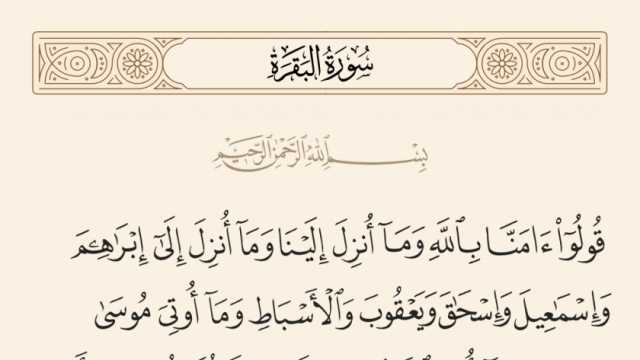 سُورَةُ البَقَرَةِ
بِسْمِ ٱللَّهِ ٱلرَّحْمَٰنِ ٱلرَّحِيمِ
قُولُوٓا۟ ءَامَنَّا بِٱللَّهِ وَمَآ أُنزِلَ إِلَيْنَا وَمَآ أُنزِلَ إِلَىٰٓ إِبْرَٰهِـۧمَ
وَإِسْمَٰعِيلَ وَإِسْحَٰقَ وَيَعْقُوبَ وَٱلْأَسْبَاطِ وَمَآ أُوتِىَ مُوسَىٰ